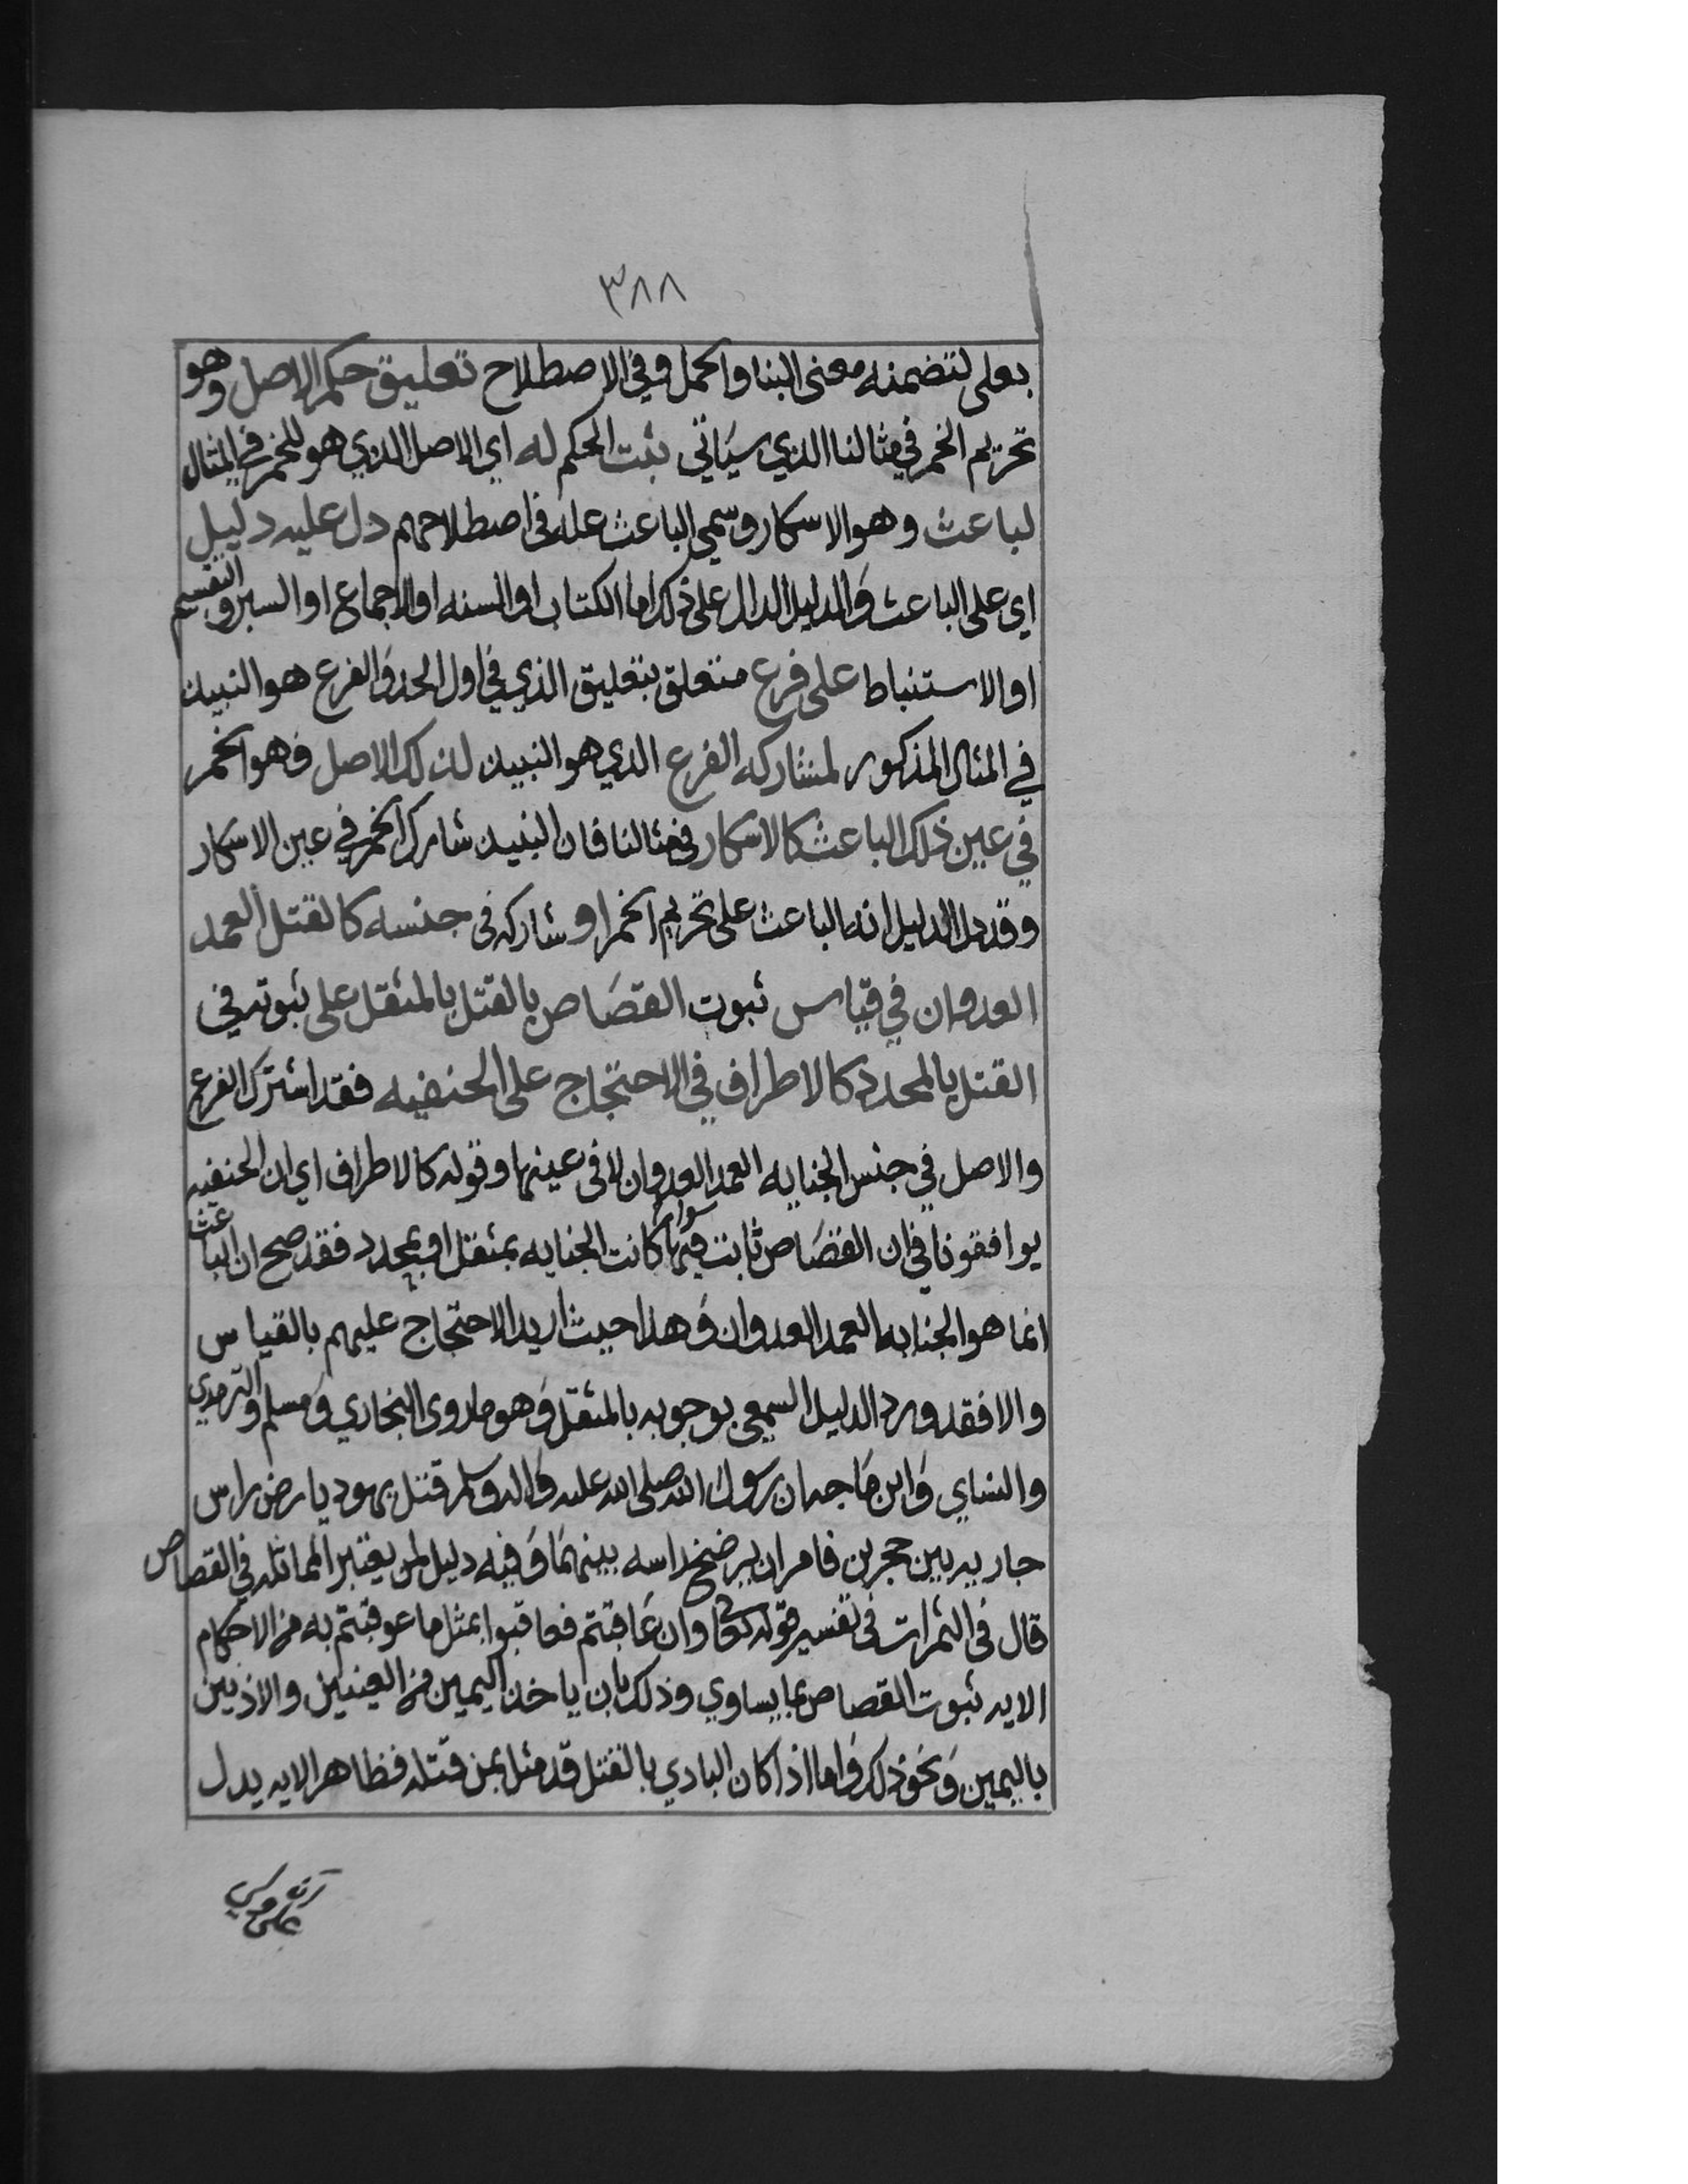 ٣٨٨
بعلى لتضمنه معنى البنا والحمل وفي الاصطلاح تعليق حكم الاصل وهو
تحريم الخمر في مثالنا الذي سياتي ثبت الحكم له اي الاصل الذي هو للخمر في المثال
لباعث وهو الاسكار وسمي الباعث عله في اصطلاحهم دل عليه دليل
اي على الباعث والدليل الدال على ذلك اما الكتاب او السنه او الاجماع او السبر والتقسيم
او الاستنباط على فرع متعلق بتعليق الذي في اول الحد والفرع هو النبيذ
في المثال المذكور لمشاركه الفرع الذي هو النبيذ لذلك الاصل وهو الخمر
في عين ذلك الباعث كالاسكار في مثالنا فان النبيذ شارك الخمر في عين الاسكار
وقد دل الدليل انه الباعث على تحريم الخمر او شاركه في جنسه كالقتل العمد
العدوان في قياس ثبوت القصاص بالقتل بالمثقل على ثبوته في
القتل بالمحدد كالاطراف في الاحتجاج على الحنفيه فقد اشترك الفرع
والاصل في جنس الجنايه العمد العدوان لا في عينها وقوله كالاطراف اي ان الحنفيه
يوافقونا في ان القصاص ثابت فيها سوا كانت الجنايه بمثقل او بمحدد فقد صح ان الباعث
انما هو الجنايه العمد العدوان وهذا حيث اريد الاحتجاج عليهم بالقياس
والا فقد ورد الدليل السمعي بوجوبه بالمثقل وهو ما روى البخاري ومسلم والترمذي
والنساي وابن ماجه ان رسول الله صلى الله عليه واله وسلم قتل يهوديا رض راس
جاريه بين حجرين فامر ان يرضخ راسه بينهما وفيه دليل لمن يعتبر المماثله في القصاص
قال في الثمرات في تفسير قوله تعالى وان عاقبتم فعاقبوا بمثل ما عوقبتم به من الاحكام
الايه ثبوت القصاص بما يساوي وذلك بان ياخذ اليمين من العينين والاذنين
باليمين ونحو ذلك واما اذا كان البادي بالقتل قد مثل بمن قتله فظاهر الايه يدل